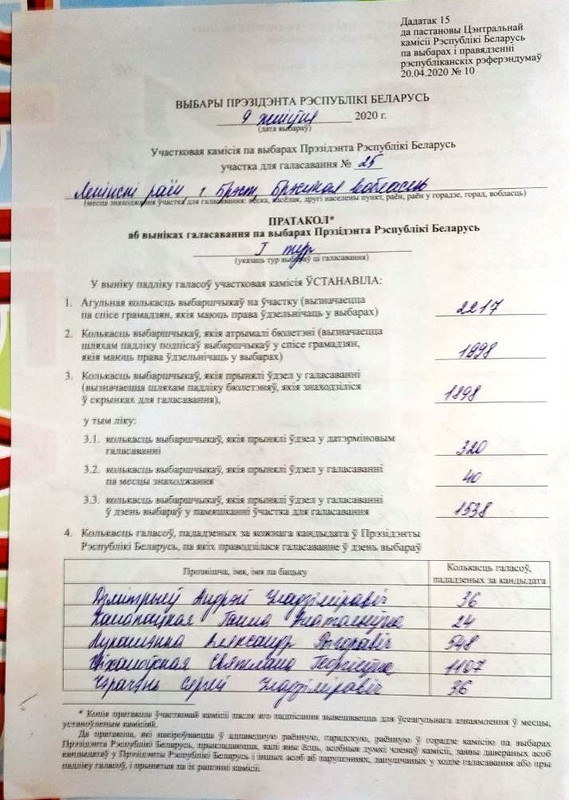 Дадатак 15
да пастановы Цэнтральнай
камісіі Рэспублікі Беларусь
па выбарах і правядзенні
рэспубліканскіх рэферэндумаў
20.04.2020 № 10
ВЫБАРЫ ПРЭЗІДЭНТА РЭСПУБЛІКІ БЕЛАРУСЬ
9 жніўня 2020 г.
(дата выбараў)
Участковая камісія па выбарах Прэзідэнта Рэспублікі Беларусь
участка для галасавання № 25
Ленінскі раён г. Брэст, Брэсцкая вобласць
(месца знаходжання ўчастка для галасавання: вёска, пасёлак, другі населены пункт, раён, раён у горадзе, горад, вобласць)
ПРАТАКОЛ*
аб выніках галасавання па выбарах Прэзідэнта Рэспублікі Беларусь
I тур
(указаць тур выбараў ці галасавання)
У выніку падліку галасоў участковая камісія ЎСТАНАВІЛА:
1. Агульная колькасць выбаршчыкаў на ўчастку (вызначаецца
па спісе грамадзян, якія маюць права ўдзельнічаць у выбарах) 2217
2. Колькасць выбаршчыкаў, якія атрымалі бюлетэні (вызначаецца
шляхам падліку подпісаў выбаршчыкаў у спісе грамадзян,
якія маюць права ўдзельнічаць у выбарах) 1998
3. Колькасць выбаршчыкаў, якія прынялі ўдзел у галасаванні
(вызначаецца шляхам падліку бюлетэняў, якія знаходзіліся
ў скрынках для галасавання), 1898
у тым ліку:
3.1. колькасць выбаршчыкаў, якія прынялі ўдзел у датэрміновым
галасаванні 320
3.2. колькасць выбаршчыкаў, якія прынялі ўдзел у галасаванні
па месцы знаходжання 40
3.3. колькасць выбаршчыкаў, якія прынялі ўдзел у галасаванні
ў дзень выбараў у памяшканні ўчастка для галасавання 1538
4. Колькасць галасоў, пададзеных за кожнага кандыдата ў Прэзідэнты
Рэспублікі Беларусь, па якіх праводзілася галасаванне ў дзень выбараў
Прозвішча, імя, імя па бацьку Колькасць галасоў,
пададзеных за кандыдата
Дзмітрыеў Андрэй Уладзіміравіч 36
Канапацкая Ганна Анатольеўна 24
Лукашэнка Аляксандр Рыгоравіч 548
Ціханоўская Святлана Георгіеўна 1107
Чэрачэнь Сяргей Уладзіміравіч 36
* Копія пратакола ўчастковай камісіі пасля яго падпісання вывешваецца для ўсеагульнага азнаямлення ў месцы,
устаноўленым камісіяй.
Да пратакола, які накіроўваецца ў адпаведную раённую, гарадскую, раённую ў горадзе камісію па выбарах
Прэзідэнта Рэспублікі Беларусь, прыкладаюцца, калі яны ёсць, асобныя думкі членаў камісіі, заявы давераных асоб
кандыдатаў у Прэзідэнты Рэспублікі Беларусь і іншых асоб аб парушэннях, дапушчаных у ходзе галасавання або пры
падліку галасоў, і прынятыя па іх рашэнні камісіі.